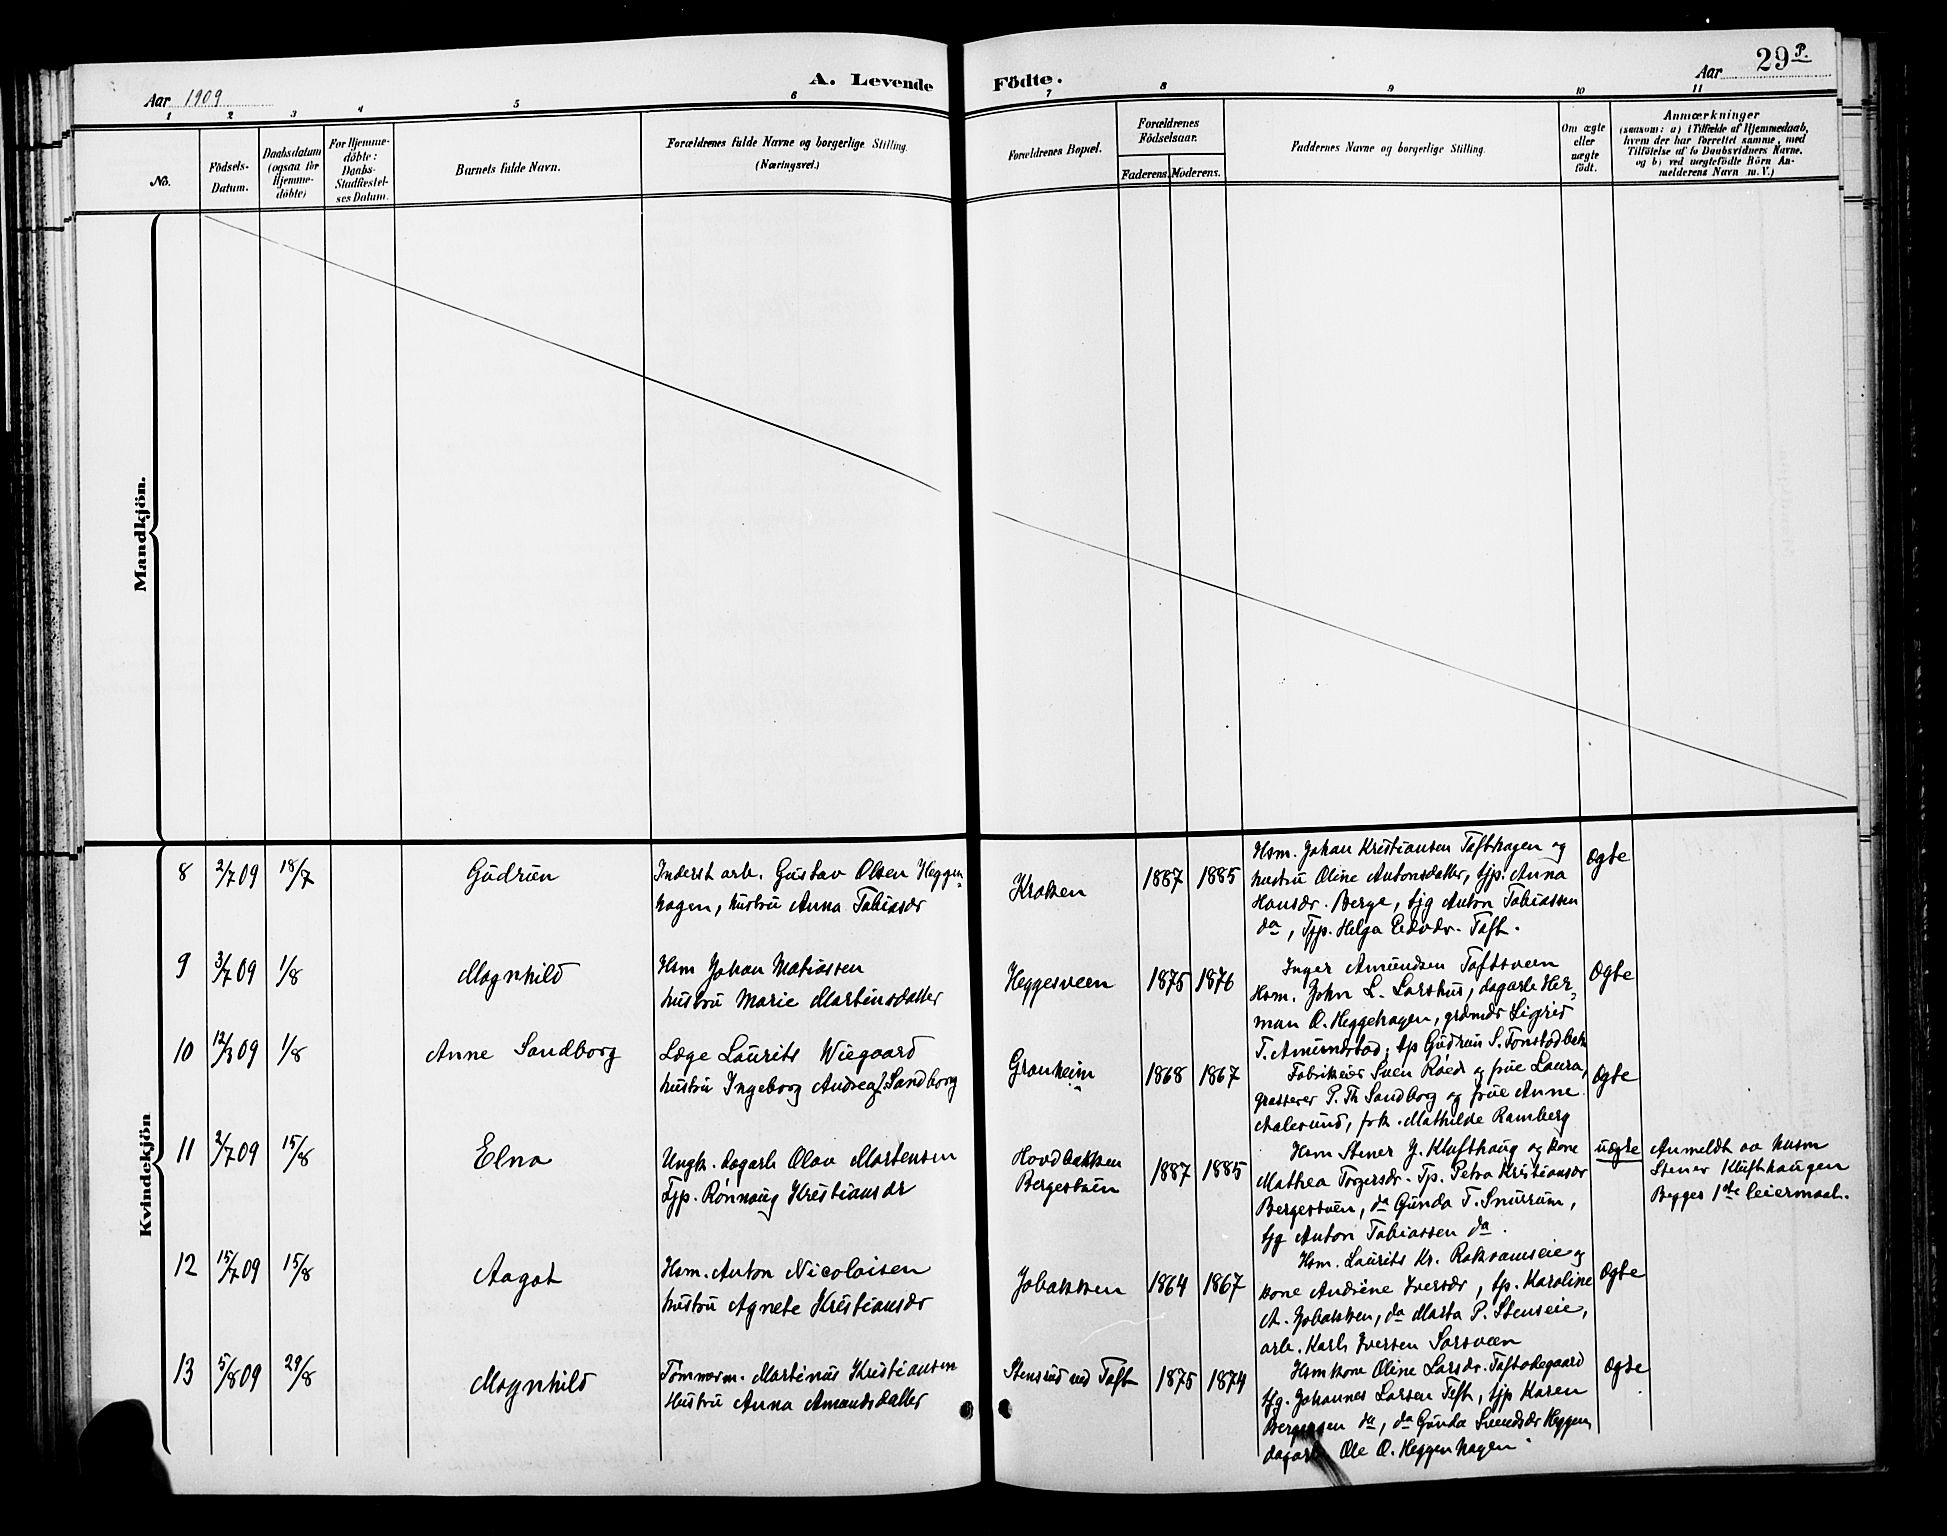 Aar 1909
A. Levende Födte.
Aar
29 P.
1 2 3 4 5 6 7 8 9 10 11
No.
Födsels-
Datum.
Daabsdatum
(ogsaa for
Hjemme-
döbte)
For Hjemme-
döbte:
Daabs-
Stadfæstel-
ses Datum.
Barnets fulde Navn.
Forældrenes fulde Navne og borgerlige Stilling.
(Næringsvei.)
Forældrenes Bopæl.
Forældrenes
Födselsaar.
Faderens. Moderens.
Faddernes Navne og borgerlige Stilling.
Om ægte
eller
uægte
födt.
Anmærkninger
(saasom: a) i Tilfælde af Hjemmedaab,
hvem der har forrettet samme, med
Tilföielse af to Daabsvidners Navne.
og b) ved uægtefödte Börn An-
melderens Navn m. V.)
Mandkjön.
Kvindekjön
8
2/7 09
18/7
Gudrun
Inderst arb. Gustav Olsen Heggen-
hagen, hustru Anna Tobiasdr
Kroken
1887
1885
Hsm. Johan Kristiansen Tofthagen og
hustru Oline Antonsdatter, tjp. Anna
Hansdr. Berge, tjg Anton Tobiassen
do, Tjp. Helga Edvdr. Toft.
Ægte
9
3/7 09
1/8
Magnhild
Hsm Johan Matiassen
hustru Marie Martinsdatter
Heggesveen
1875
1876
Inger Amundsen Toftsveen
Hsm. John L. Larshus, dagarb Her-
man O. Heggehagen, grdmdr Sigrid
T. Amundstad, tp Gudrun S. Tonstadbek
Ægte
10
12/3 09
1/8
Anne Sandborg
Læge Laurits Wiegaard
hustru Ingeborg Andrea f. Sandborg
Granheim
1868
1867
Fabrikeier Sven Røed og frue Laura,
grosserer P. Th Sandborg og frue Anne
Aalesund, frk. Mathilde Ramberg
Ægte
11
2/7 09
15/8
Elna
Ungk. dagarb Olav Martensen
Tjp. Rønnaug Kristiansdr
Hovdbakken
Bergestuen
1887
1885
Hsm Stener J. Klufthaug og kone
Mathea Torgersdr. Tp. Petra Kristiansdr
Bergestuen, do Gunda T. Snurrum,
tjg Anton Tobiassen do.
uægte
Anmeldt av husm
Stener Klufthaugen
Begges 1ste leiermaal.
12
15/7 09
15/8
Aagot
Hsm. Anton Nicolaisen
hustru Agnete Kristiansdr
Jobakken
1864
1867
Hsm. Laurits Kr. Roksameie og
kone Andrine Iversdr, tp. Karoline
A. Jobakken, do Marta P. Stenseie,
arb. Karl Iversen Sorsveen
Ægte
13
5/8 09
29/8
Magnhild
Tømmerm. Martinus Kristiansen
Hustru Anna Amundsdatter
Stensrud ved Toft
1875
1874
Hsmkone Oline Larsdr. Toftødegaard
tjg. Johannes Larsen Toft, tjp Karen
Bergersen do, do Gunda Svendsdr Heggen,
dagarb Ole O. Heggenhagen.
Ægte